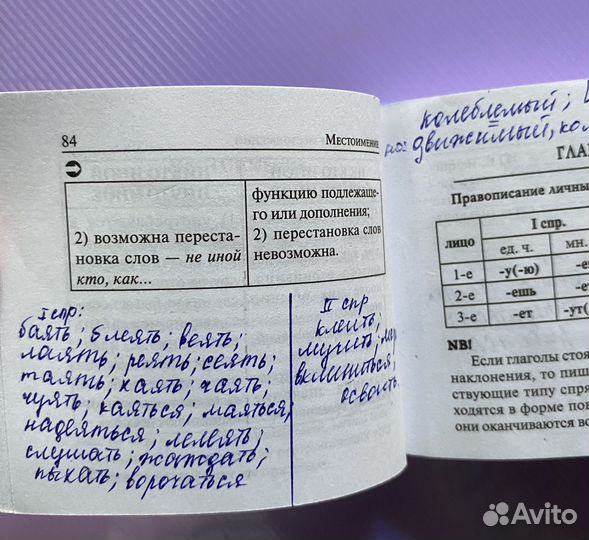 84
Местоимение
функцию подлежаще-
го или дополнения;
2) возможна переста-
новка слов — не иной
кто, как...
2) перестановка слов
невозможна.
I спр:
баять; блеять; веять;
лаять; реять; сеять;
таять; хаять; чаять;
чуять; каяться; маяться;
надеяться; лелеять;
слушать; жаждать;
пыхать; ворочаться
II спр
клеить;
мучить;
вклиниться;
освоить.
колеблемый;
но: движимый,
ГЛА
Правописание личны
лицо
I спр.
ед. ч.
мн.
1-е
-у(-ю)
2-е
-ешь
3-е
-ет
-ут(
NB!
Если глаголы стоя
наклонения, то пиш
ствующие типу спря
ходятся в форме пов
они оканчиваются во
Avito